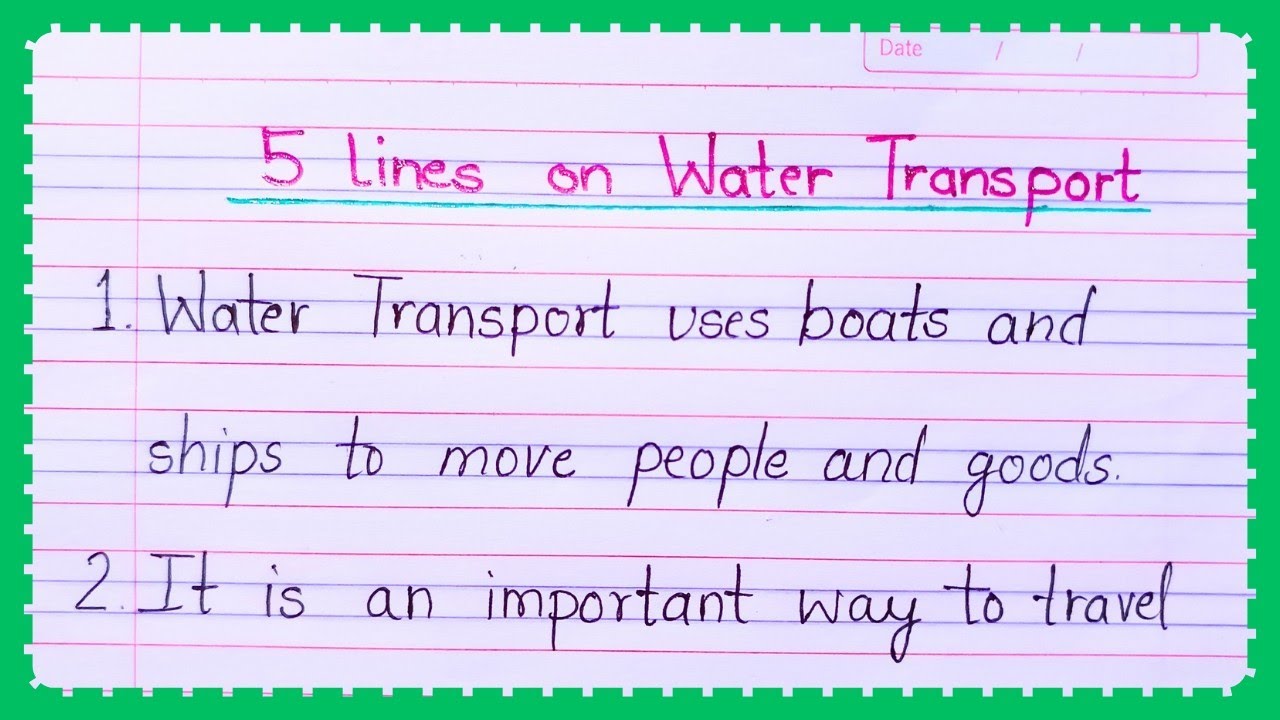 Date / /
5 lines on Water Transport
1. Water Transport uses boats and
ships to move people and goods.
2. It is an important way to travel